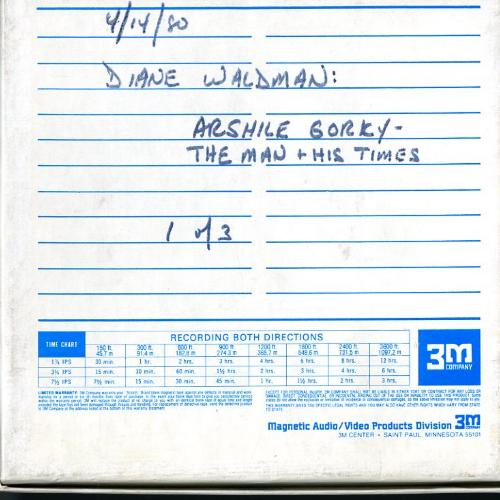 4/14/80
DIANE WALDMAN:
ARSHILE GORKY -
THE MAN + HIS TIMES
1 of 3
RECORDING BOTH DIRECTIONS
TIME CHART 150 ft. 300 ft. 600 ft. 900 ft. 1200 ft. 1800 ft. 2400 ft. 3600 ft.
45.7 m 91.4 m 182.8 m 274.3 m 365.7 m 548.6 m 731.5 m 1097.2 m
1⅞ IPS 30 min. 1 hr. 2 hrs. 3 hrs. 4 hrs. 6 hrs. 8 hrs. 12 hrs.
3¾ IPS 15 min. 30 min. 60 min. 1½ hrs. 2 hrs. 3 hrs. 4 hrs. 6 hrs.
7½ IPS 7½ min. 15 min. 30 min. 45 min. 1 hr. 1½ hrs. 2 hrs. 3 hrs.
3M
COMPANY
LIMITED WARRANTY:
Magnetic Audio/Video Products Division 3M
COMPANY
3M CENTER • SAINT PAUL, MINNESOTA 55101